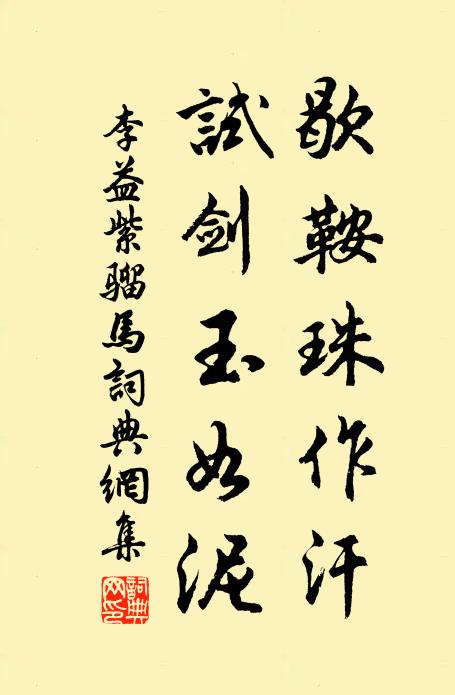 歇鞍珠作汗
試劍玉如泥
李益紫騮馬詞典網集
詞典
网印